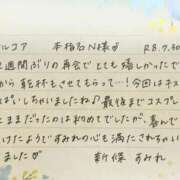 ルコア 本指名N様♂ R8.7.30
2週間ぶりの再会でとても嬉しかったで
から乾杯もさせてもらって…!今回はキス
ぱいしちゃいましたね♪最後までコスプレ
まだったのは初めてでしたが、喜んで
けたようですみれの心も満たされちゃい
ました♡ 新條 すみれ